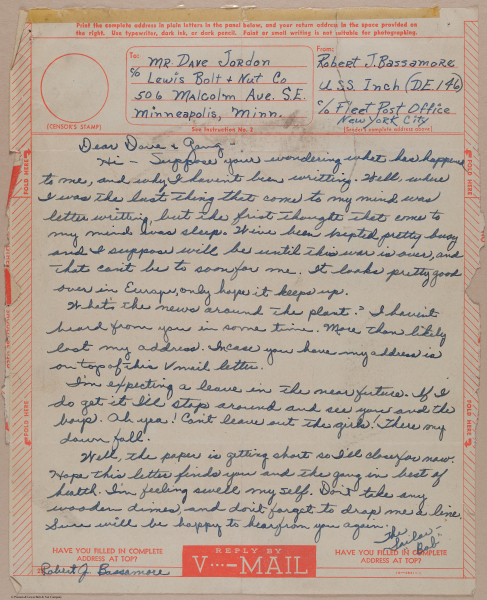 Print the complete address in plain letters in the panel below, and your return address in the space provided on
the right. Use typewriter, dark ink, or dark pencil. Faint or small writing is not suitable for photographing.
To:
Mr. Dave Jordon
c/o Lewis Bolt & Nut Co
506 Malcolm Ave. S.E.
Minneapolis, Minn.
From:
Robert J. Bassamore
U.S.S. Inch (DE.146)
c/o Fleet Post Office
New York City
(CENSOR'S STAMP)
See Instruction No. 2
(Sender's complete address above)
FOLD HERE
FOLD HERE
Dear Dave & Gang -
Hi - Suppose your wondering what has happend
to me, and why I haven't been writting. Well, where
I was the last thing that come to my mind was
letter writting, but the first thought that come to
my mind was sleep. We've been kepted pretty busy
and I suppose will be until this war is over, and
that can't be to soon for me. It looks pretty good
over in Europe, only hope it keeps up.
What's the news around the plant? I haven't
heard from you in some time. More than likely
lost my address. Incase you have my address is
on top of this V mail letter.
I'm expecting a leave in the near future. If I
do get it I'll stop around and see you and the
boys. Oh yea! Can't leave out the girls. There my
down fall.
Well, the paper is getting short so I'll close for now.
Hope this letter finds you and the gang in best of
health. I'm feeling swell my self. Don't take any
wooden dimes, and don't forget to drop me a line.
Sure will be happy to hear from you again.
The
Sailor -
Bob -
FOLD HERE
FOLD HERE
HAVE YOU FILLED IN COMPLETE
ADDRESS AT TOP?
REPLY BY
V···—MAIL
HAVE YOU FILLED IN COMPLETE
ADDRESS AT TOP?
Robert J Bassamore